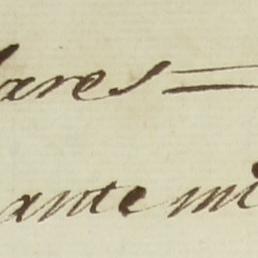 lares =
ante mi